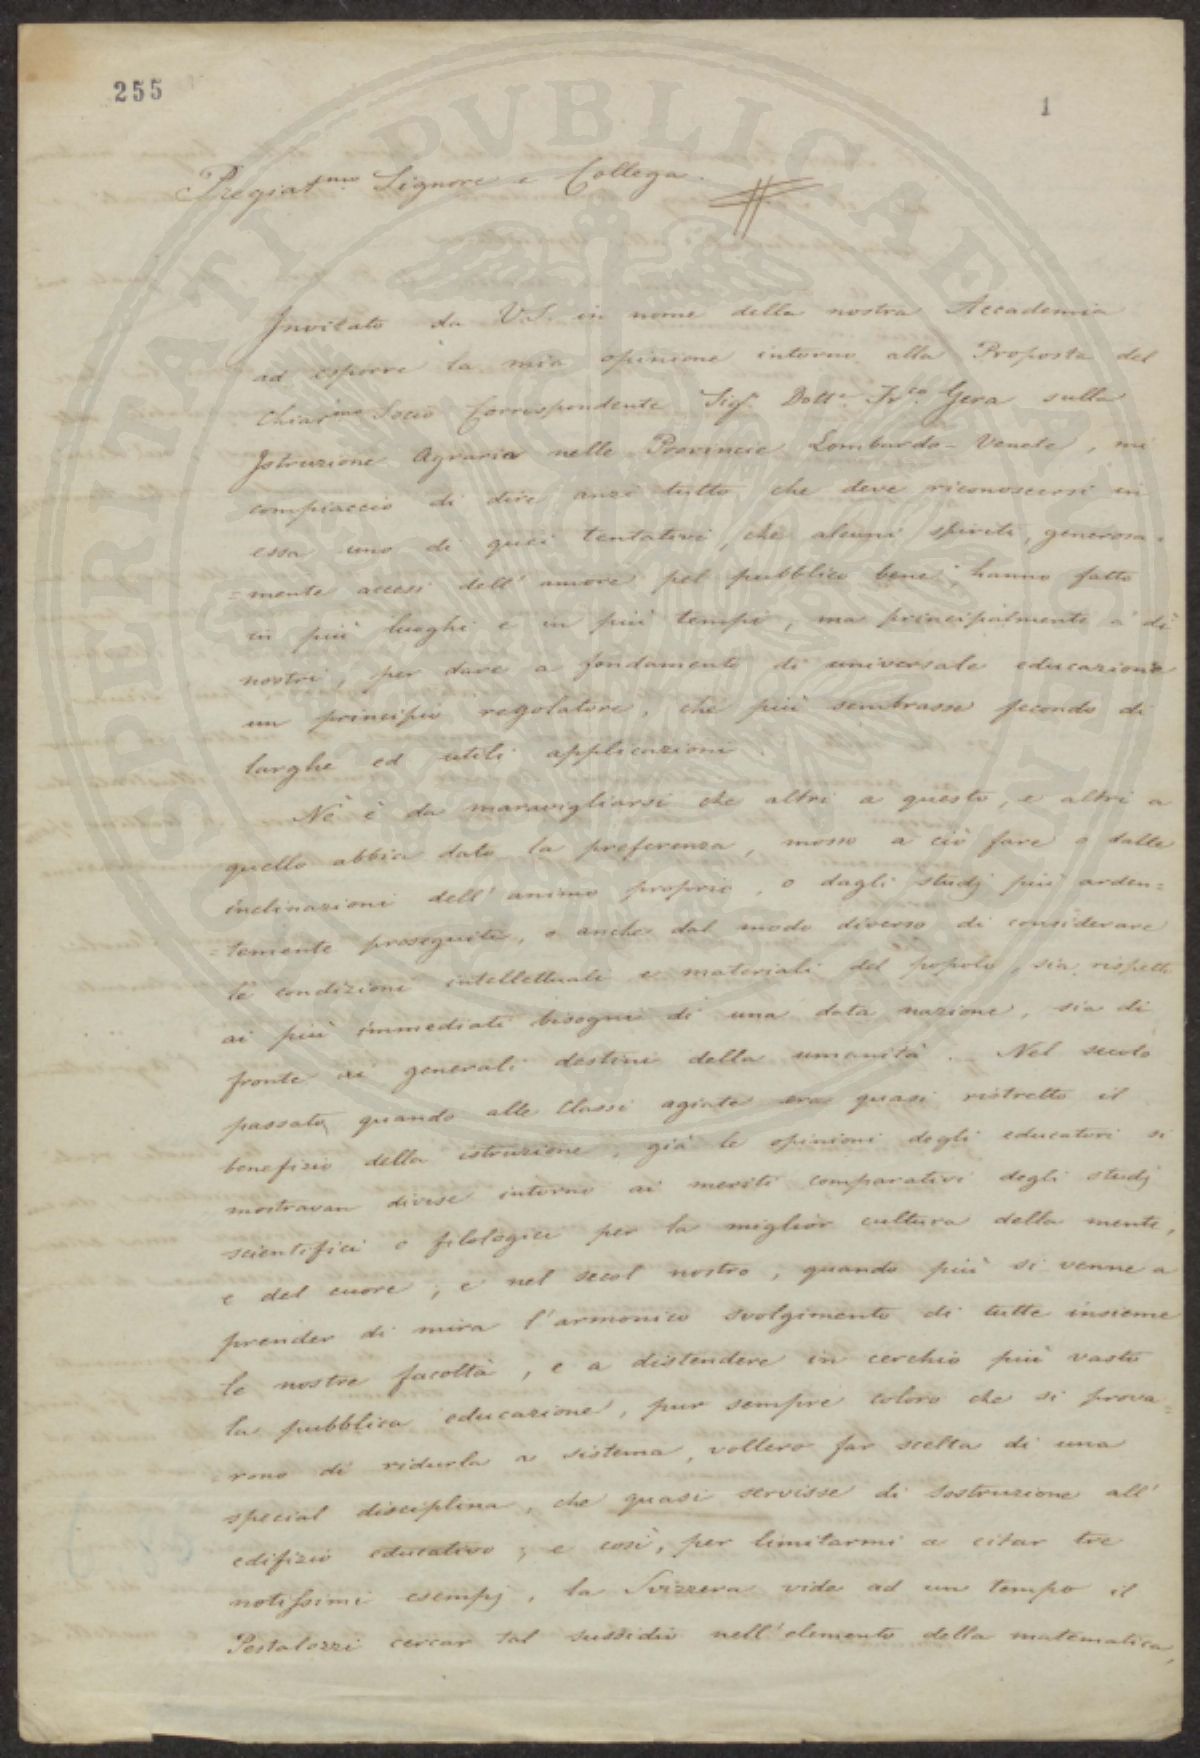 255
1
PROSPERITATI PVBLICAE AVGENDAE
Pregiat.mo Signore e Collega.
Invitato da V.S. in nome della nostra Accademia
ad esporre la mia opinione intorno alla Proposta del
Chiar.mo Socio Corrispondente Sig.r Dott.r Fr.co Gera sulla
Istruzione Agraria nelle Provincie Lombardo-Venete, mi
compiaccio di dire anzi tutto che deve riconoscersi in
essa uno di quei tentativi, che alcuni spiriti, generosa-
=mente accesi dell'amore pel pubblico bene, hanno fatto
in più luoghi e in più tempi, ma principalmente a' dì
nostri, per dare a fondamento di universale educazione
un principio regolatore, che più sembrasse fecondo di
larghe ed utili applicazioni.
Nè è da maravigliarsi che altri a questo, e altri a
quello abbia dato la preferenza, mosso a ciò fare o dalle
inclinazioni dell'animo proprio, o dagli studj più arden=
=temente proseguiti, o anche dal modo diverso di considerare
le condizioni intellettuali e materiali del popolo, sia rispetto
ai più immediati bisogni di una data nazione, sia di
fronte ai generali destini della umanità. Nel secolo
passato, quando alle Classi agiate era quasi ristretto il
benefizio della istruzione, già le opinioni degli educatori si
mostravan divise intorno ai meriti comparativi degli studj
scientifici o filologici per la miglior cultura della mente,
e del cuore; e nel secol nostro, quando più si venne a
prender di mira l'armonico svolgimento di tutte insieme
le nostre facoltà, e a distendere in cerchio più vasto
la pubblica educazione, pur sempre coloro che si prova=
rono di ridurla a sistema, vollero far scelta di una
special disciplina, che quasi servisse di sostruzione all'
edifizio educativo; e così, per limitarmi a citar tre
notissimi esempj, la Svizzera vide ad un tempo il
Pestalozzi cercar tal sussidio nell'elemento della matematica,